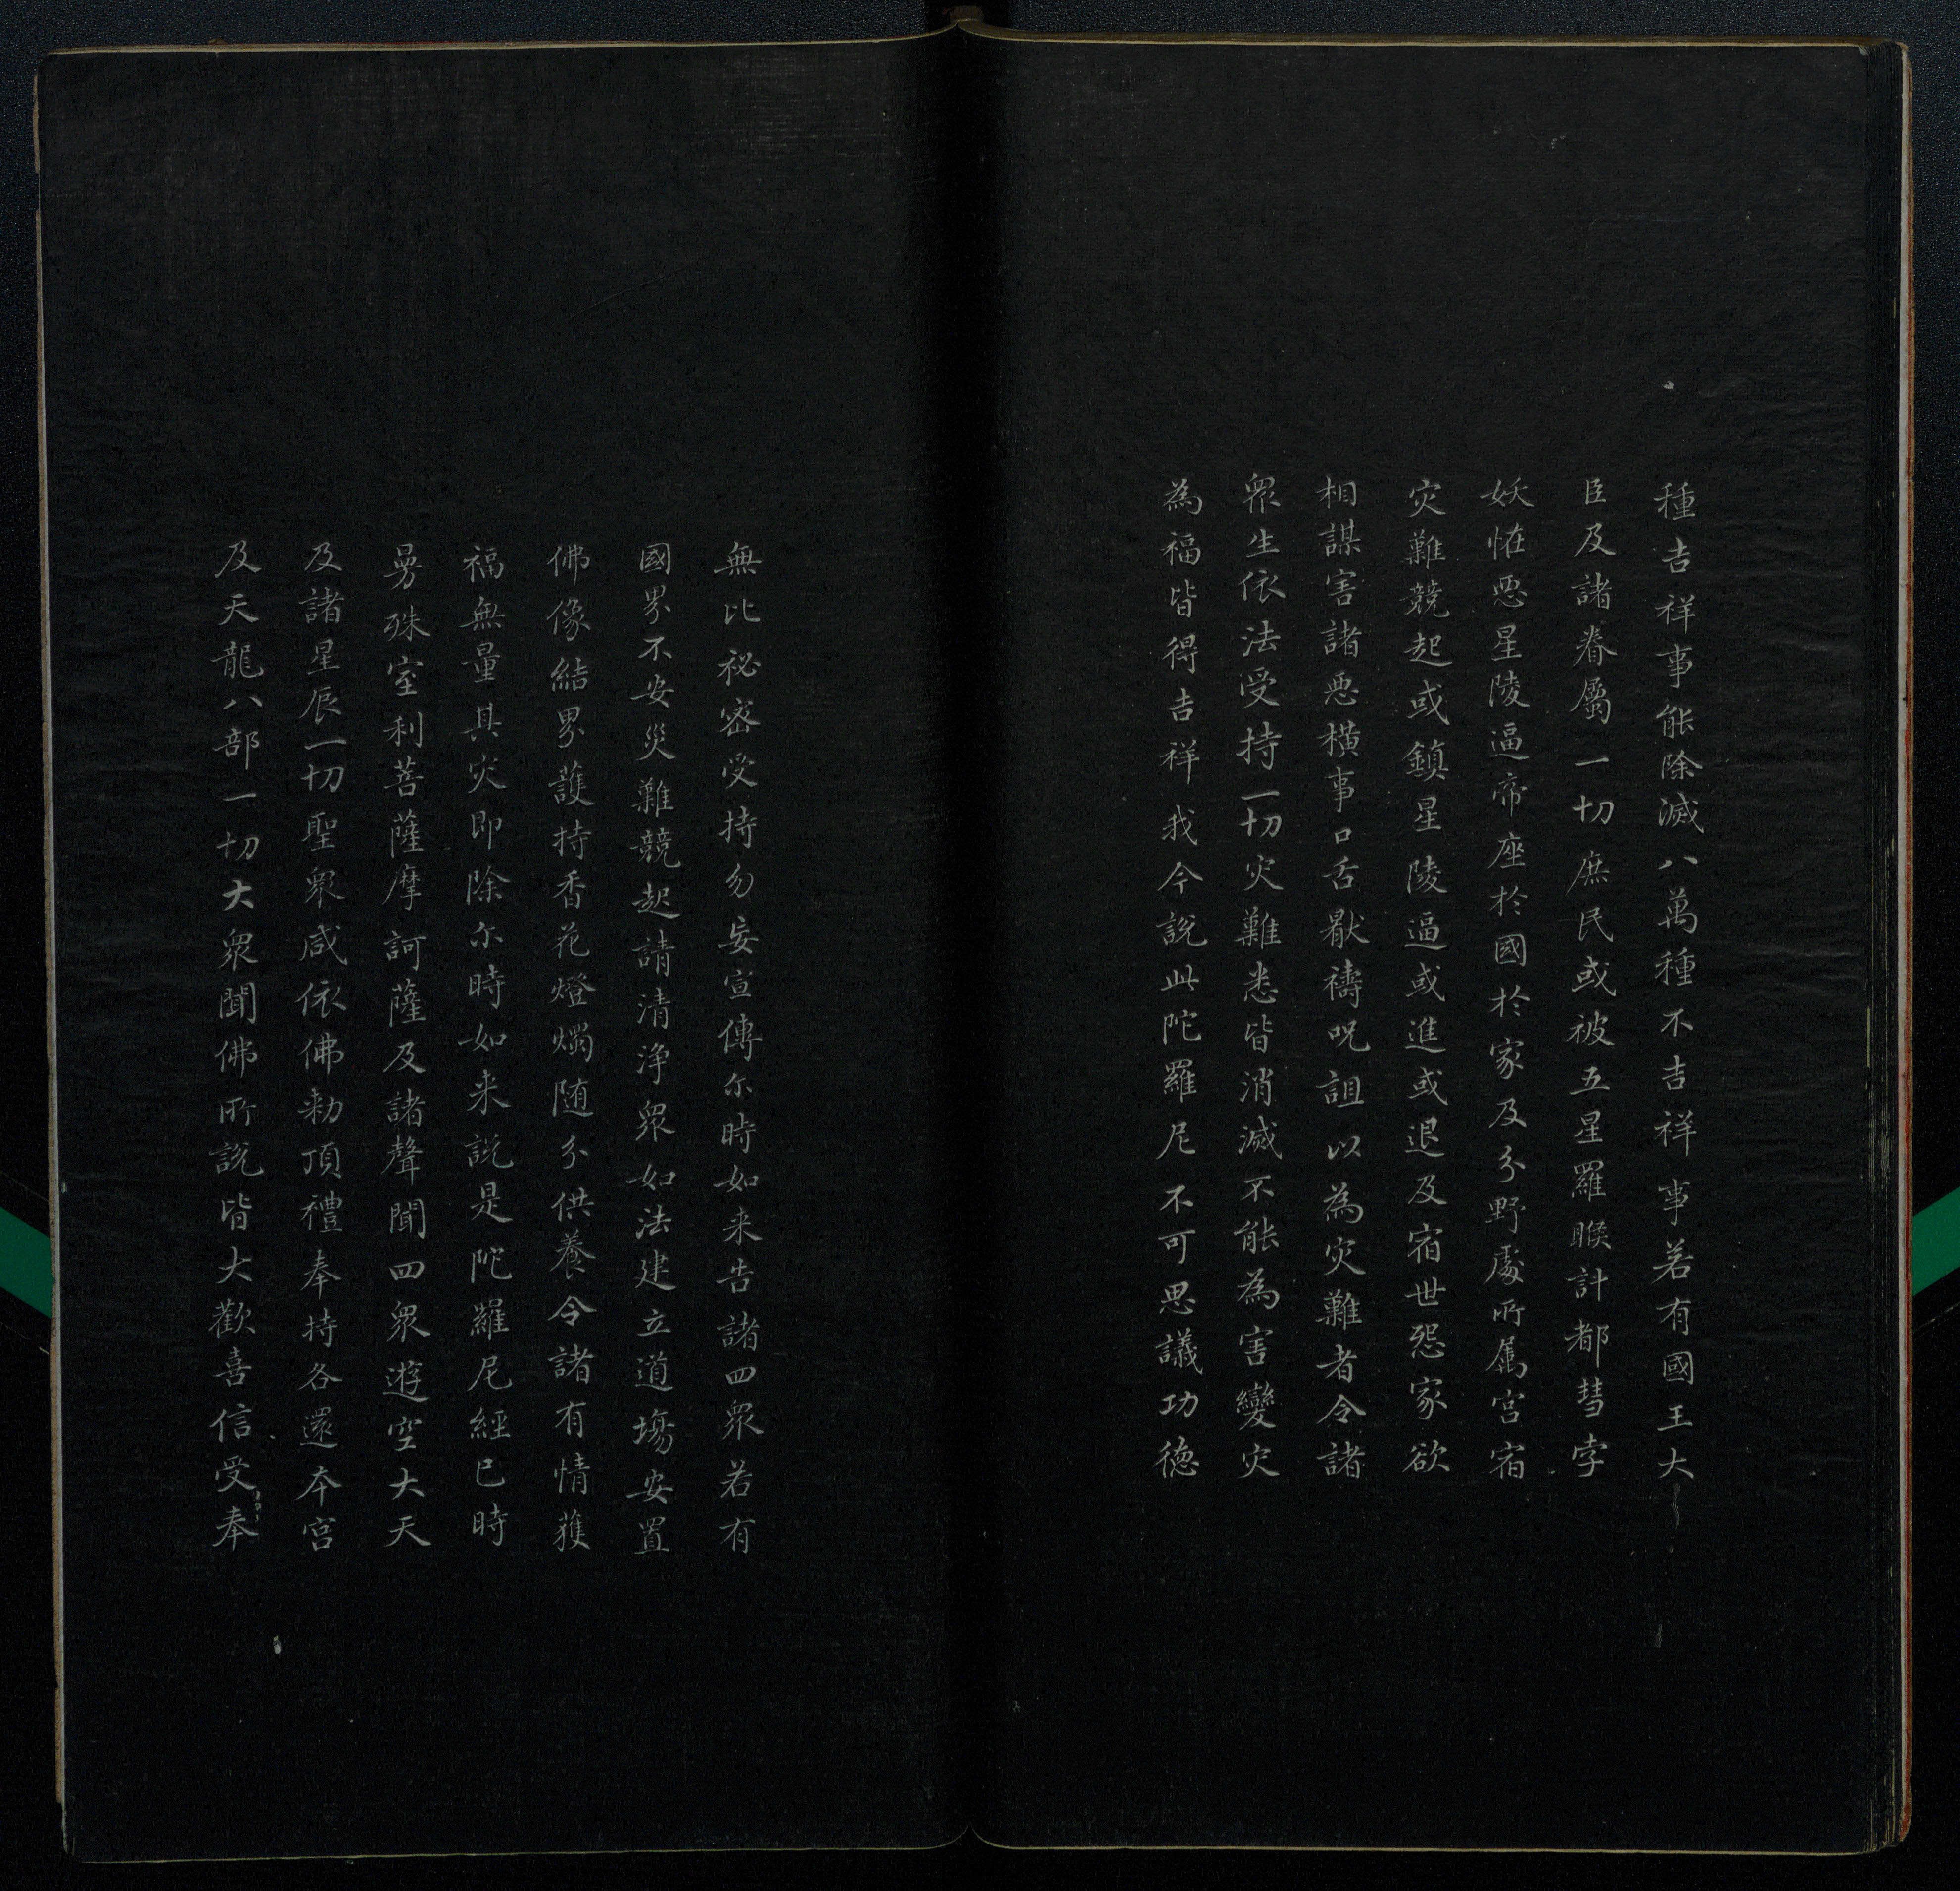 種吉祥事能除滅八萬種不吉祥事若有國王大
臣及諸眷屬一切庶民或被五星羅睺計都彗孛
妖恠惡星陵逼帝座於國於家及分野處所属宮宿
灾難競起或鎮星陵逼或進或退及宿世怨家欲
相謀害諸惡橫事口舌猒禱呪詛以為灾難者令諸
眾生依法受持一切灾難悉皆消滅不能為害變灾
為福皆得吉祥我今說此陀羅尼不可思議功德
無比祕密受持勿妄宣傳尔時如来告諸四眾若有
國界不安災難競起請清淨眾如法建立道場安置
佛像結界護持香花燈燭随分供養令諸有情獲
福無量其灾即除尔時如来說是陀羅尼經已時
曼殊室利菩薩摩訶薩及諸聲聞四眾遊空大天
及諸星辰一切聖眾咸依佛勅頂禮奉持各還本宮
及天龍八部一切大眾聞佛所說皆大歡喜信受奉